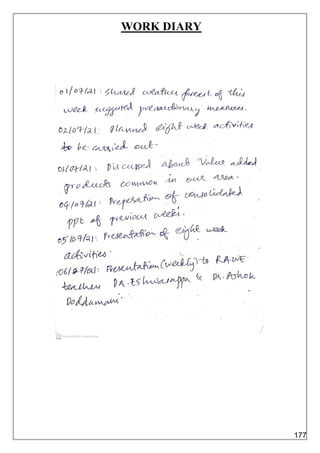 WORK DIARY
01/07/21 : Shared weather forcest of this
week suggested precautionary measures.
02/07/21: Planned eight week activities
to be carried out.
03/07/21: Discussed about Value added
products common in our area.
04/07/21: Preperation of consolidated
ppt of previous weeks.
05/07/21: Presentation of eight week
activities.
06/07/21: Presentation (weekly) to RAWE
teacher DR. Eshwarappa & DR. Ashok
Doddamani.
177